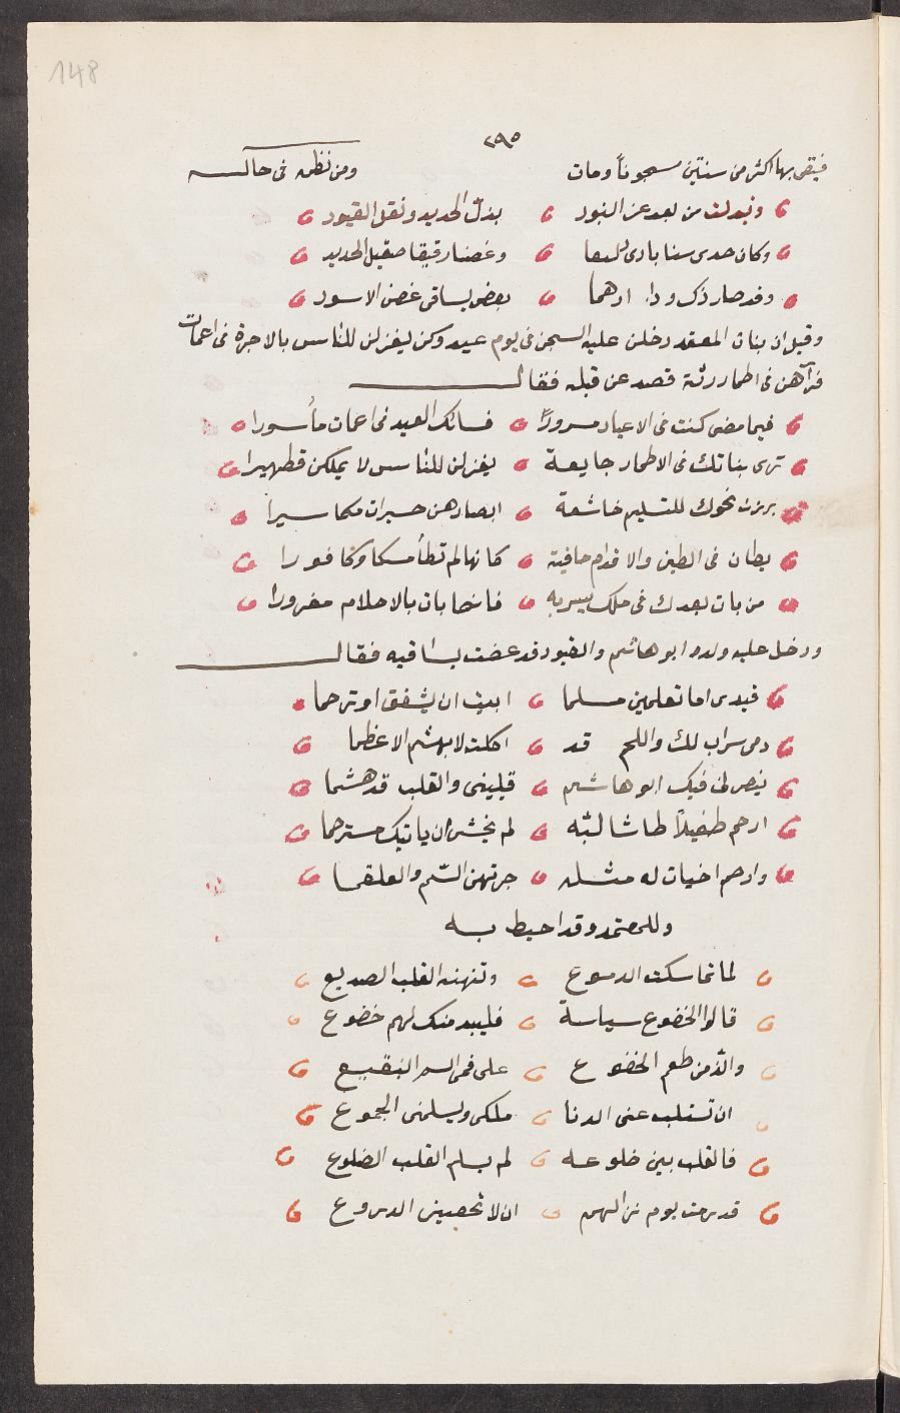 148
٢٩٥
فبقي بها اكثر من سنتين مسجونًا ومات ومن نظمه في حاله
وتبدلت من بعد عز البنود بذل الحديد وثقل القيود
وكان حدى سنانا وعضبا رقيقا صقيل الحديد
وقد صار ذاك وذا ادهما يعض بساقي عض الاسود
وقيل ان بنات المعتمد دخلن عليه السجن في يوم عيد وكن يغزلن للناس بالاجرة في اغمات
فرآهن في اطمار رثة فصدعن قلبه فقال
فيما مضى كنت في الاعياد مسرورًا فساءك العيد في اغمات مأسورا
ترى بناتك في الاطمار جايعة يغزلن للناس لا يملكن قطميرا
برزن نحوك للتسليم خاشعة ابصارهن حسيرات مكاسيرا
يطأن في الطين والاقدام حافية كانها لم تطأ مسكا وكافورا
من بات بعدك في ملك يسر به فانما بات بالاحلام مغرورا
ودخل عليه ولده ابو هاشم والقيود قد عضت بساقيه فقال
قيدي اما تعلمني مسلما ابيت ان تشفق او ترحما
دمي شراب لك واللحم قد اكلته لا تهشم الاعظما
يبصرني فيك ابو هاشم فينثني والقلب قد هشما
ارحم طفيلًا طائشا لبّه لم يخش ان ياتيك مسترحما
وارحم اخيات له مثله جرعتهن السّم والعلقما
وللمعتمد وقد احيط به
لما تماسكت الدموع وتنهنه القلب الصديع
قالوا الخضوع سياسة فليبد منك لهم خضوع
والذ من طعم الخضوع على فمي السم النقيع
ان تستلب عني الدنا ملكي وتسلمني الجموع
فالقلب بين ضلوعه لم تسلم القلب الضلوع
قد رمت يوم نزالهم ان لا تحصنني الدروع